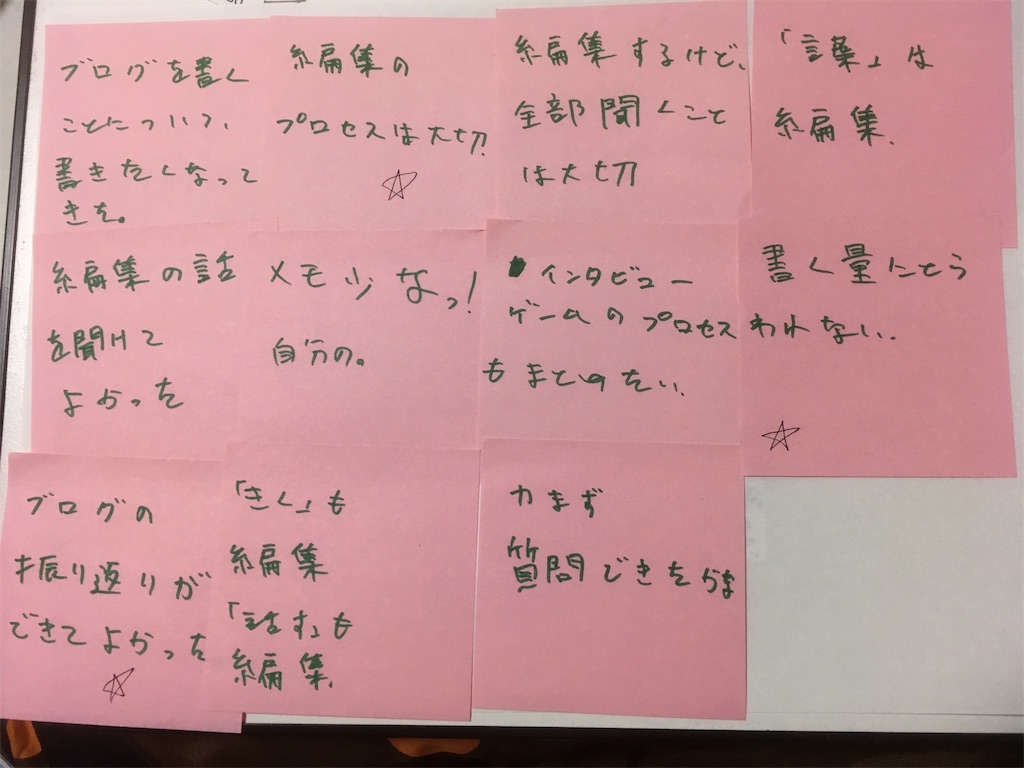 ブログを書く
ことについて、
書きたくなって
きた。
編集の
プロセスは大切.
編集するけど、
全部聞くこと
は大切
「言葉」は
編集.
編集の話
を聞けて
よかった
メモ少なっ!
自分の。
インタビュー
ゲームのプロセス
もまとめたい.
書く量にとら
われない.
ブログの
振り返りが
できてよかった
「きく」も
編集
「話す」も
編集.
力まず
質問できた